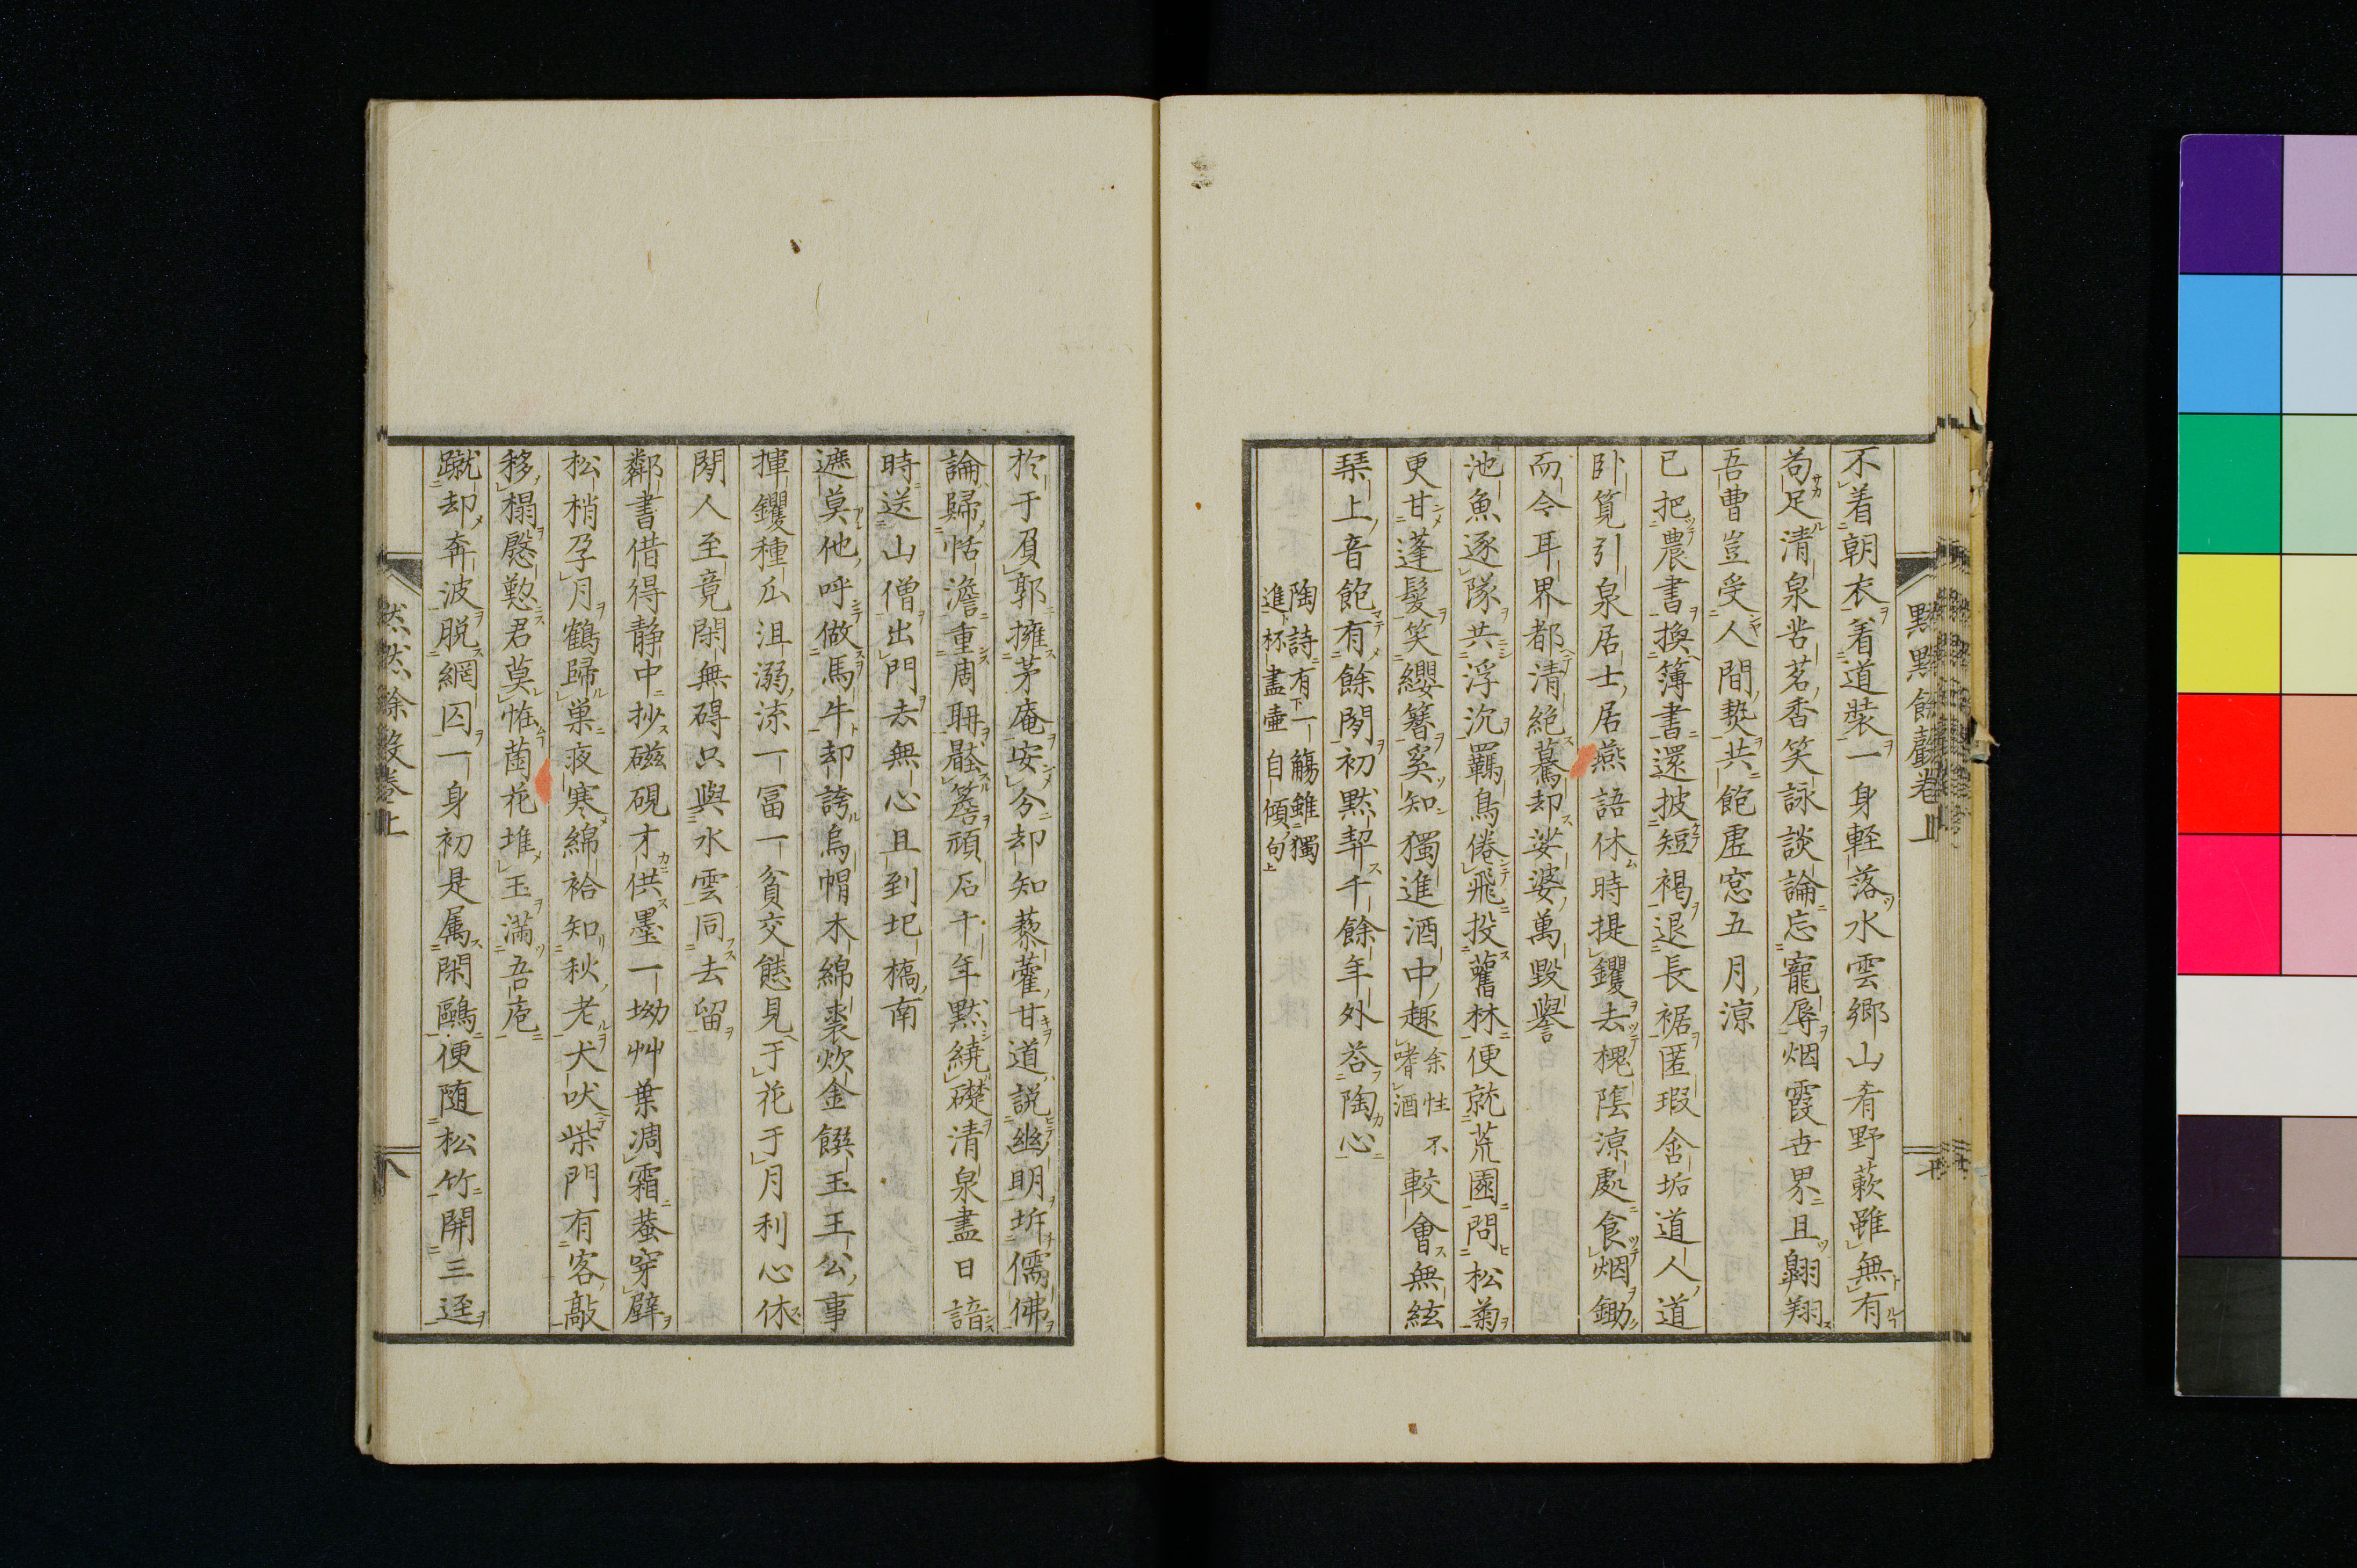 黙黙餘聲卷上
不着朝衣着道裝一身軽落水雲郷山肴野蔌雖無有
苟足清泉苦茗香笑詠談論忘寵辱烟霞世界且翺翔
吾曹豈受人間熱共飽虚窓五月涼
已把農書換簿書還披短褐退長裾匿瑕含垢道人道
卧筧引泉居士居燕語休時提钁去槐陰涼處食烟鋤
而今耳界都清絶驀却娑婆萬毀譽
池魚逐隊共浮沉羈鳥倦飛投舊林便就荒園問松菊
更甘蓬髮笑纓簪奚知獨進酒中趣余性不嗜酒較會無絃
琴上音飽有餘閑初黙契千餘年外荅陶心
陶詩有一觴雖獨
進杯盡壷自傾句
十
於于負郭擁茅庵安分却知藜藿甘道説幽明坼儒佛
論歸恬澹重周耼鼚簷頑石千年黙繞礎清泉盡日諳
時送山僧出門去無心且到圯橋南
遮莫他呼做馬牛却誇烏帽木綿裘炊金饌玉王公事
揮钁種瓜沮溺流一冨一貧交態見于花于月利心休
閑人至竟閑無碍只與水雲同去留
鄰書借得静中抄磁硯才供墨一坳艸葉凋霜蛬穿壁
松梢孕月鶴歸巣夜寒綿袷知秋老犬吠柴門有客敲
移榻慇懃君莫恠菌花堆玉滿吾庖
蹴却奔波脱網囚一身初是属閑鷗便随松竹開三逕
黙黙餘聲卷上
八